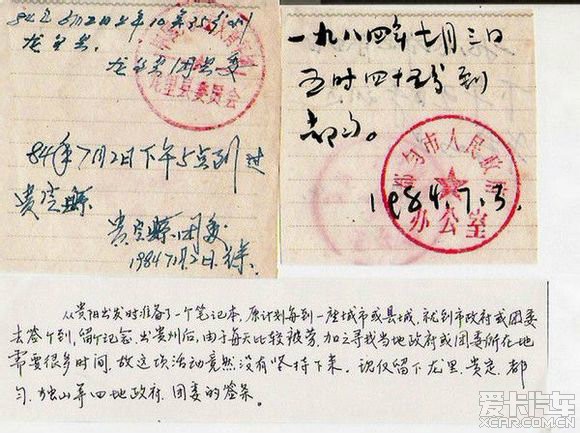 84年7月2日上午10点35分到
龙里县。
龙里县团县委
龙里县委员会
84年7月2日下午5点到过
贵定县
贵定县团委
1984 7月2日
一九八四年七月三日
五时四十五分到
都匀。
都匀市人民政府
办公室
1984.7.3.
从贵阳出发时准备了一个笔记本，原计划每到一座城市或县城，就到市政府或团委
去签个到，留个纪念。出贵州后，由于每天比较疲劳，加之寻找当地政府或团委所在地
需要很多时间，故这项活动竟然没有坚持下来。现仅留下龙里、贵定、都
匀、独山等四地政府、团委的签条。
爱卡汽车
XCAR.COM.CN